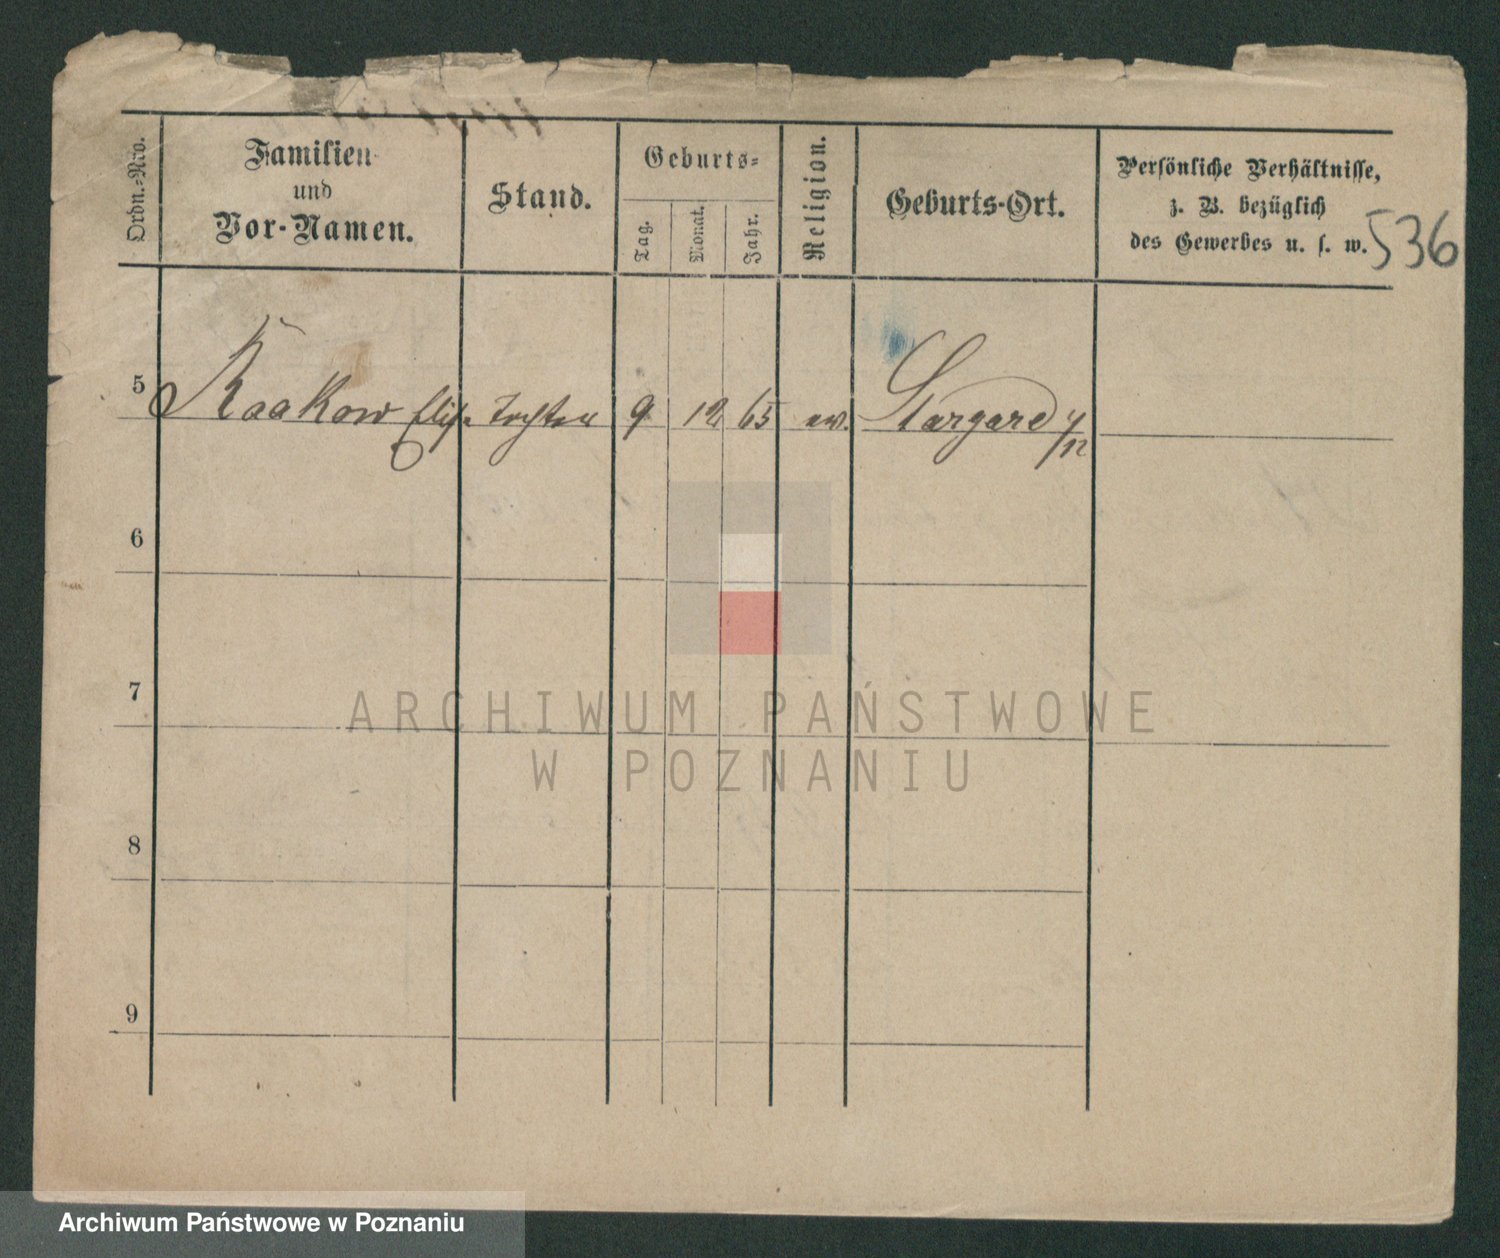 Ordn.-Nro.
Familien
und
Vor-Namen.
Stand.
Geburts-
Tag.
Monat.
Jahr.
Religion.
Geburts-Ort.
Persönliche Verhältnisse,
z. B. bezüglich
des Gewerbes u. s. w.
536
5 Kaakow Elise Tochter 9 12 65 ev. Stargard
6
7
8
9
ARCHIWUM PAŃSTWOWE
W POZNANIU
Archiwum Państwowe w Poznaniu